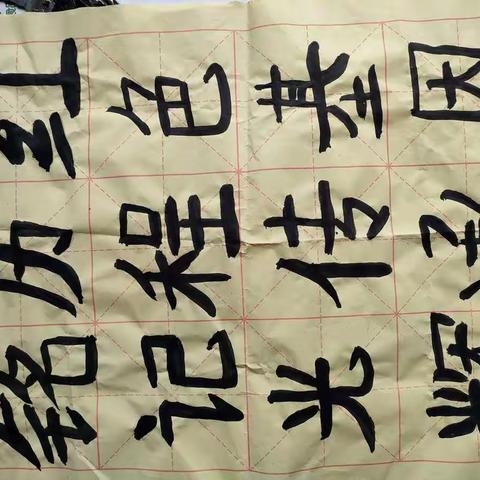 铭记光辉
历程传承
红色基因